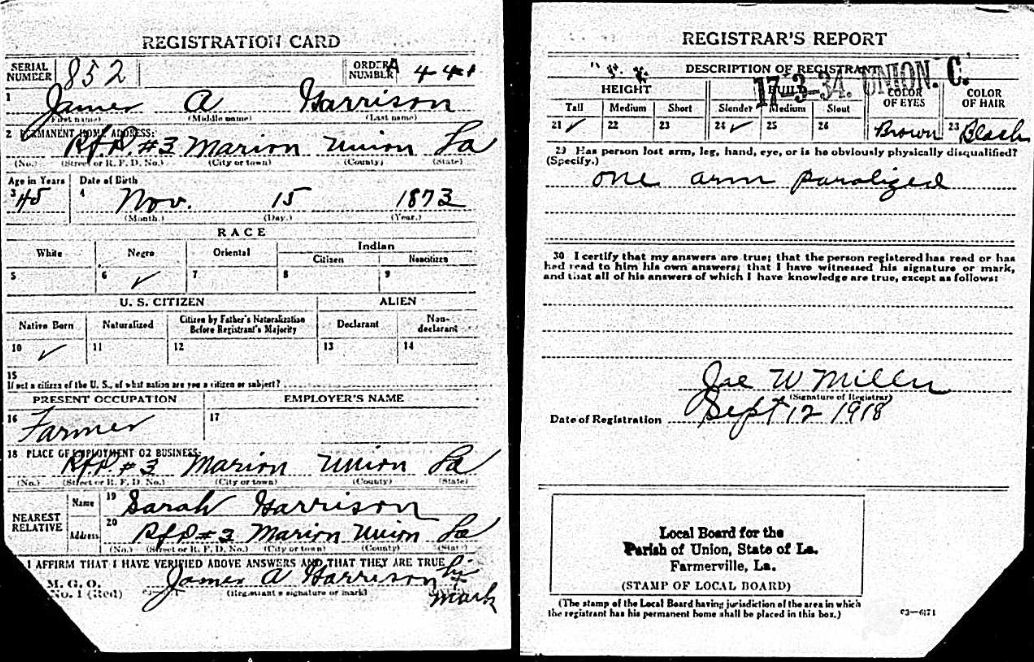 REGISTRATION CARD
SERIAL NUMBER 852 ORDER NUMBER A 44
1 James A Harrison
(First name) (Middle name) (Last name)
2 PERMANENT HOME ADDRESS:
Rfd #3 Marion Union La
(No.) (Street or R. F. D. No.) (City or town) (County) (State)
Age in Years Date of Birth
3 45 4 Nov. 15 1873
(Month.) (Day.) (Year.)
RACE
White Negro Oriental Indian
Citizen Noncitizen
5 6 ✓ 7 8 9
U. S. CITIZEN ALIEN
Native Born Naturalized Citizen by Father's Naturalization Before Registrant's Majority Declarant Non-declarant
10 ✓ 11 12 13 14
15
If not a citizen of the U. S., of what nation are you a citizen or subject?
PRESENT OCCUPATION EMPLOYER'S NAME
16 Farmer 17
18 PLACE OF EMPLOYMENT OR BUSINESS:
Rfd #3 Marion Union La
(No.) (Street or R. F. D. No.) (City or town) (County) (State)
NEAREST RELATIVE Name 19 Sarah Harrison
Address 20 Rfd #3 Marion Union La
(No.) (Street or R. F. D. No.) (City or town) (County) (State)
I AFFIRM THAT I HAVE VERIFIED ABOVE ANSWERS AND THAT THEY ARE TRUE
P. M. G. O.
Form No. 1 (Red) James A Harrison his mark
(Registrant's signature or mark)
REGISTRAR'S REPORT
17-3-34. UNION. C.
DESCRIPTION OF REGISTRANT
HEIGHT BUILD COLOR OF EYES COLOR OF HAIR
Tall Medium Short Slender Medium Stout
21 ✓ 22 23 24 ✓ 25 26 Brown 28 Black
29 Has person lost arm, leg, hand, eye, or is he obviously physically disqualified?
(Specify.)
one arm paralized
30 I certify that my answers are true; that the person registered has read or has
had read to him his own answers; that I have witnessed his signature or mark,
and that all of his answers of which I have knowledge are true, except as follows:
Joe W Miller
(Signature of Registrar)
Date of Registration Sept 12 1918
Local Board for the
Parish of Union, State of La.
Farmerville, La.
(STAMP OF LOCAL BOARD)
(The stamp of the Local Board having jurisdiction of the area in which
the registrant has his permanent home shall be placed in this box.)
03—6171